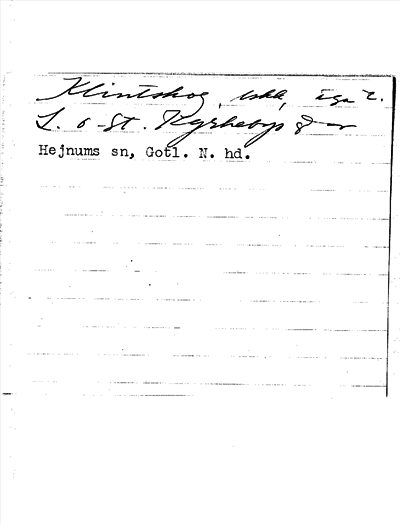 Klintskog, lskh, äga t.
L. o St. Kyrkebys
Hejnums sn, Gotl. N. hd.